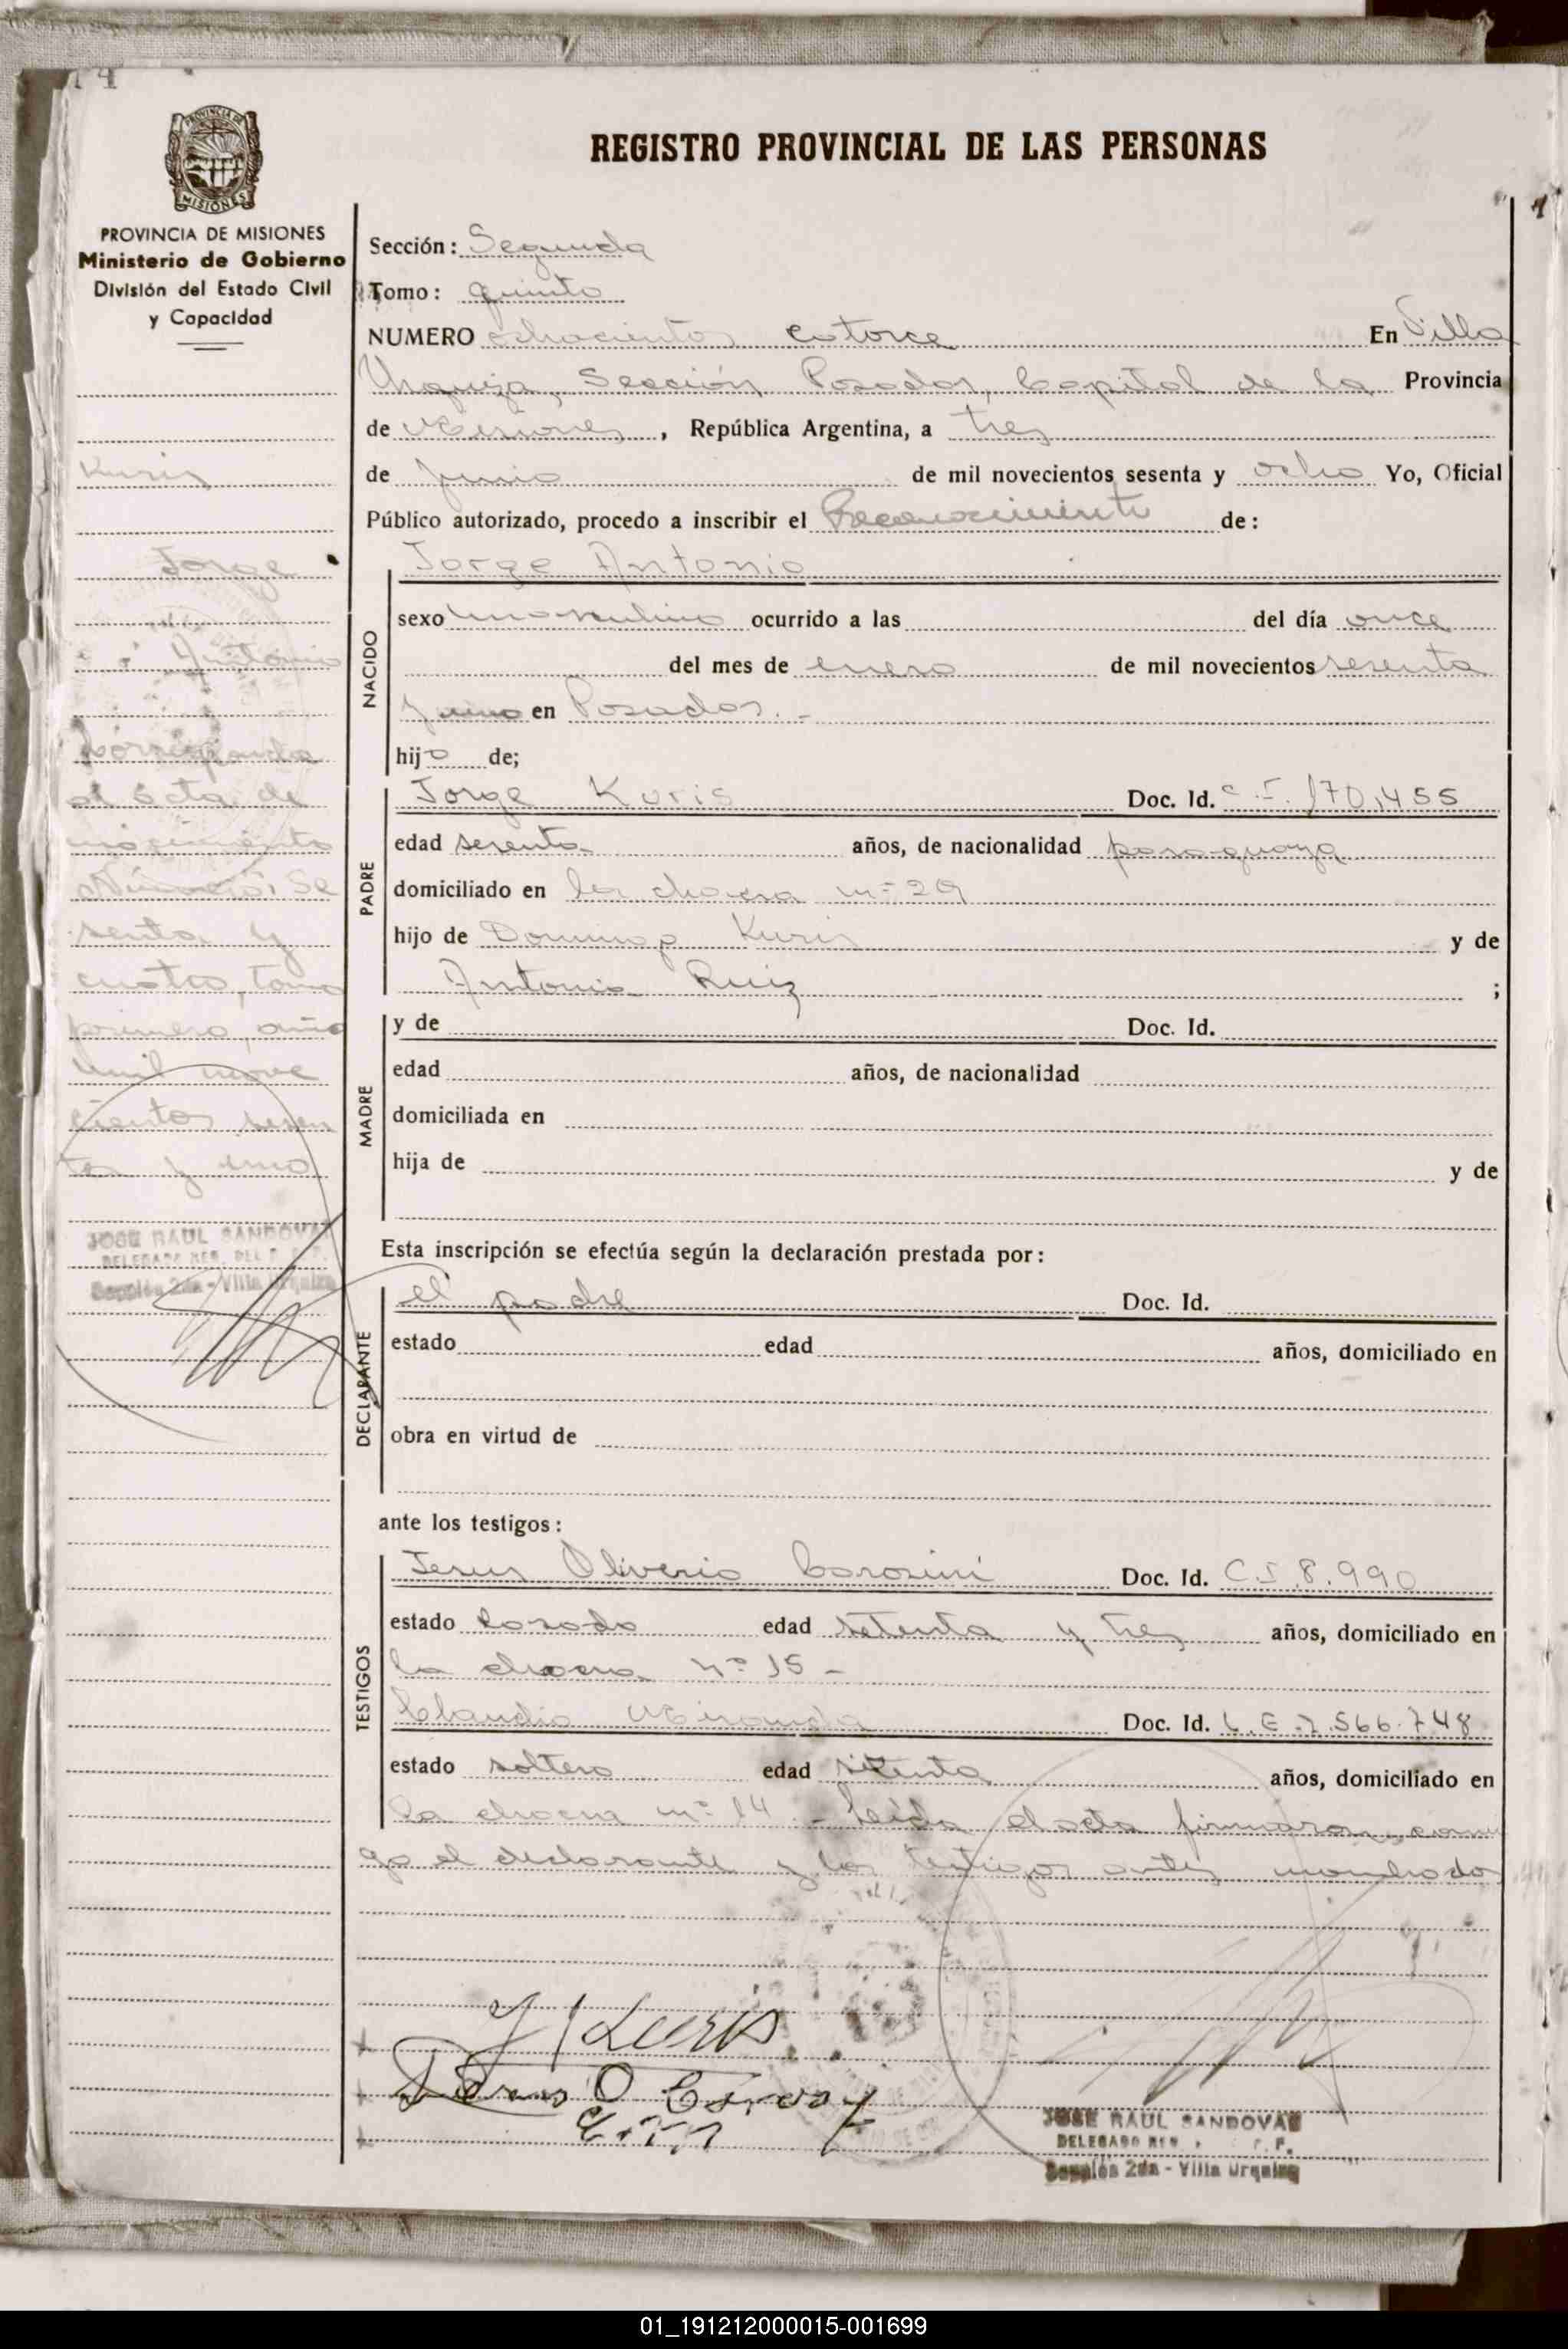 14
PROVINCIA DE MISIONES
PROVINCIA DE MISIONES
Ministerio de Gobierno
División del Estado Civil
y Capacidad
Kuris
Jorge
Antonio
Corresponde
al acta de
nacimiento
Número: se
senta y
cuatro, tomo
primero, año
mil nove
cientos sesen
ta y uno
JOSE RAUL SANDOVAL
Sección 2da - Villa Urquiza
REGISTRO PROVINCIAL DE LAS PERSONAS
Sección: Segunda
Tomo: quinto
NUMERO ochocientos catorce En Villa
Urquiza, Sección Posadas, Capital de la Provincia
de Misiones, República Argentina, a tres
de junio de mil novecientos sesenta y ocho Yo, Oficial
Público autorizado, procedo a inscribir el Reconocimiento de:
Jorge Antonio
NACIDO
sexo masculino ocurrido a las del día once
del mes de enero de mil novecientos sesenta
y uno en Posadas. -
hijo de;
PADRE
Jorge Kuris Doc. Id. C.I. 170,455
edad sesenta años, de nacionalidad paraguaya
domiciliado en la chacra nº 29
hijo de Domingo Kuris y de
Antonia Ruiz ;
MADRE
y de Doc. Id.
edad años, de nacionalidad
domiciliada en
hija de y de
Esta inscripción se efectúa según la declaración prestada por:
DECLARANTE
el padre Doc. Id.
estado edad años, domiciliado en
obra en virtud de
ante los testigos:
TESTIGOS
Jesus Oliverio Doc. Id. C.I. 8.990
estado casado edad setenta y tres años, domiciliado en
la chacra nº 15 -
Claudio Miranda Doc. Id. L.E. 7.566.748
estado soltero edad años, domiciliado en
la chacra nº 14 - Leída el acta firmaron conmi
go el declarante y los testigos antes nombrados
J Kuris
JOSE RAUL SANDOVAL
Sección 2da - Villa Urquiza
01_191212000015-001699